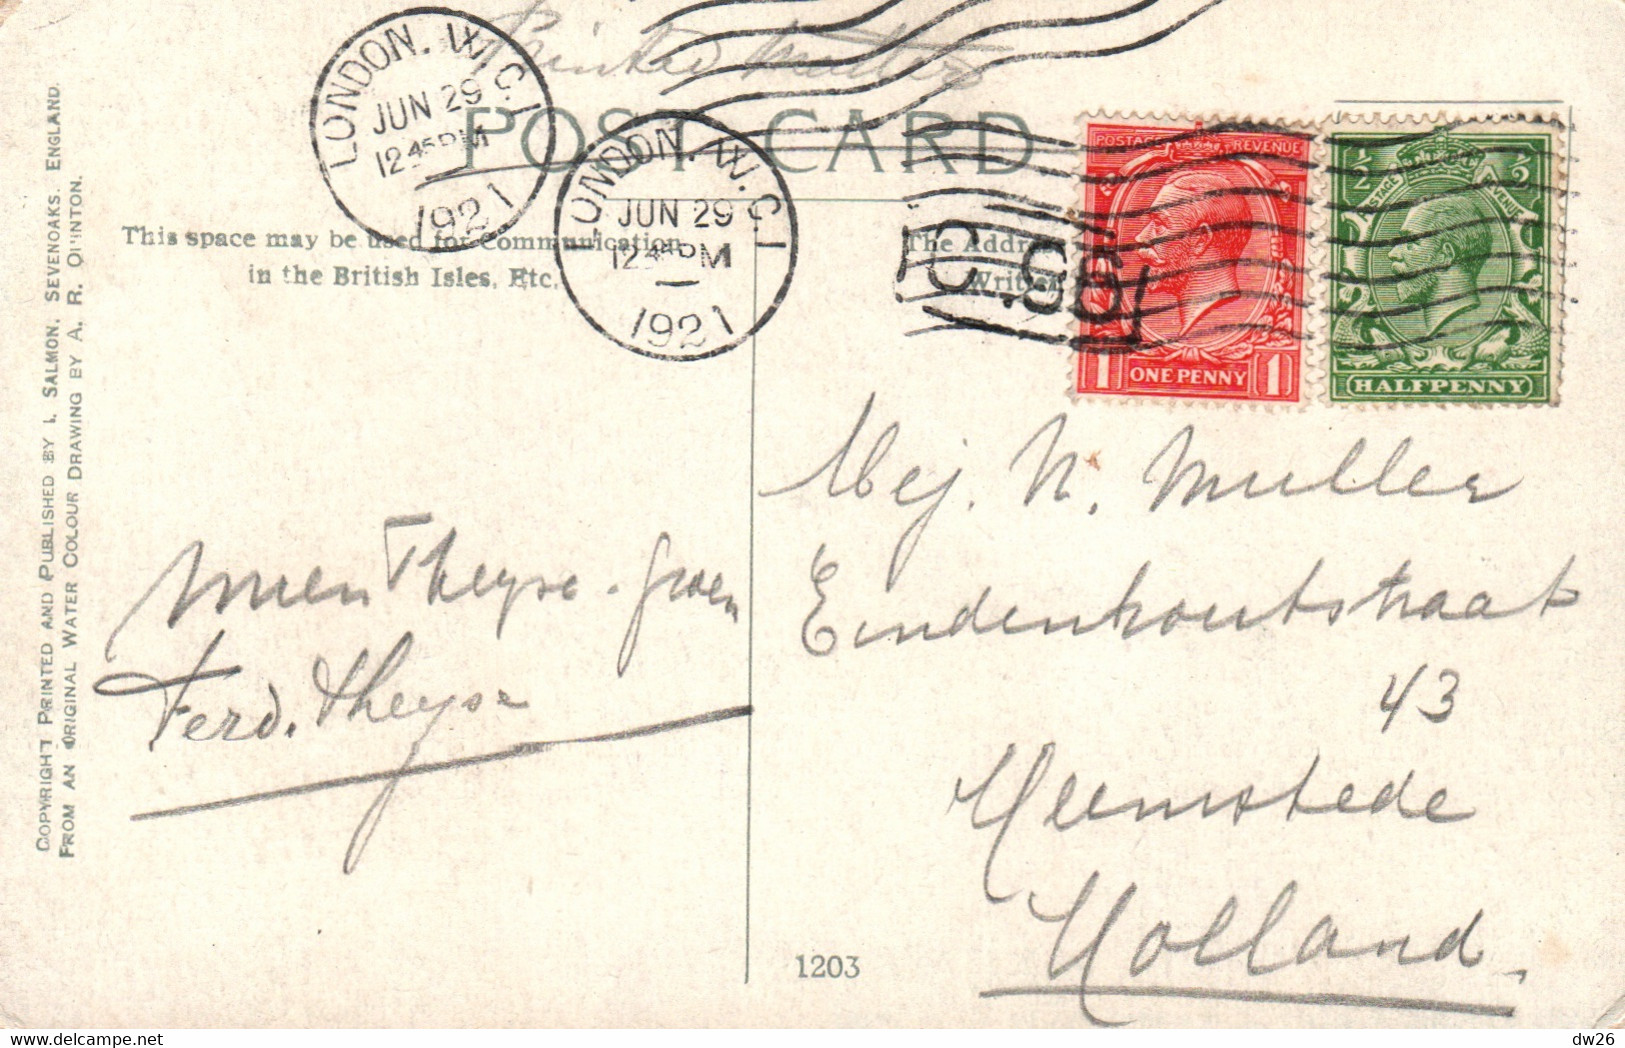 Printed Matter
POST CARD
LONDON. W.C.1
JUN 29
12.45 PM
1921
LONDON. W.C.1
JUN 29
12.45 PM
1921
This space may be used for Communication
in the British Isles, Etc.
The Addre
Writte
POSTAGE REVENUE
1 ONE PENNY 1
½ ½
POSTAGE REVENUE
HALFPENNY
COPYRIGHT PRINTED AND PUBLISHED BY J. SALMON. SEVENOAKS. ENGLAND.
FROM AN ORIGINAL WATER COLOUR DRAWING BY A. R. QUINTON.
Mej. N. Muller
Eindenhoutstraat
43
Heemstede
Holland.
Mien Theyse
Ferd. Theyse
1203
dw26